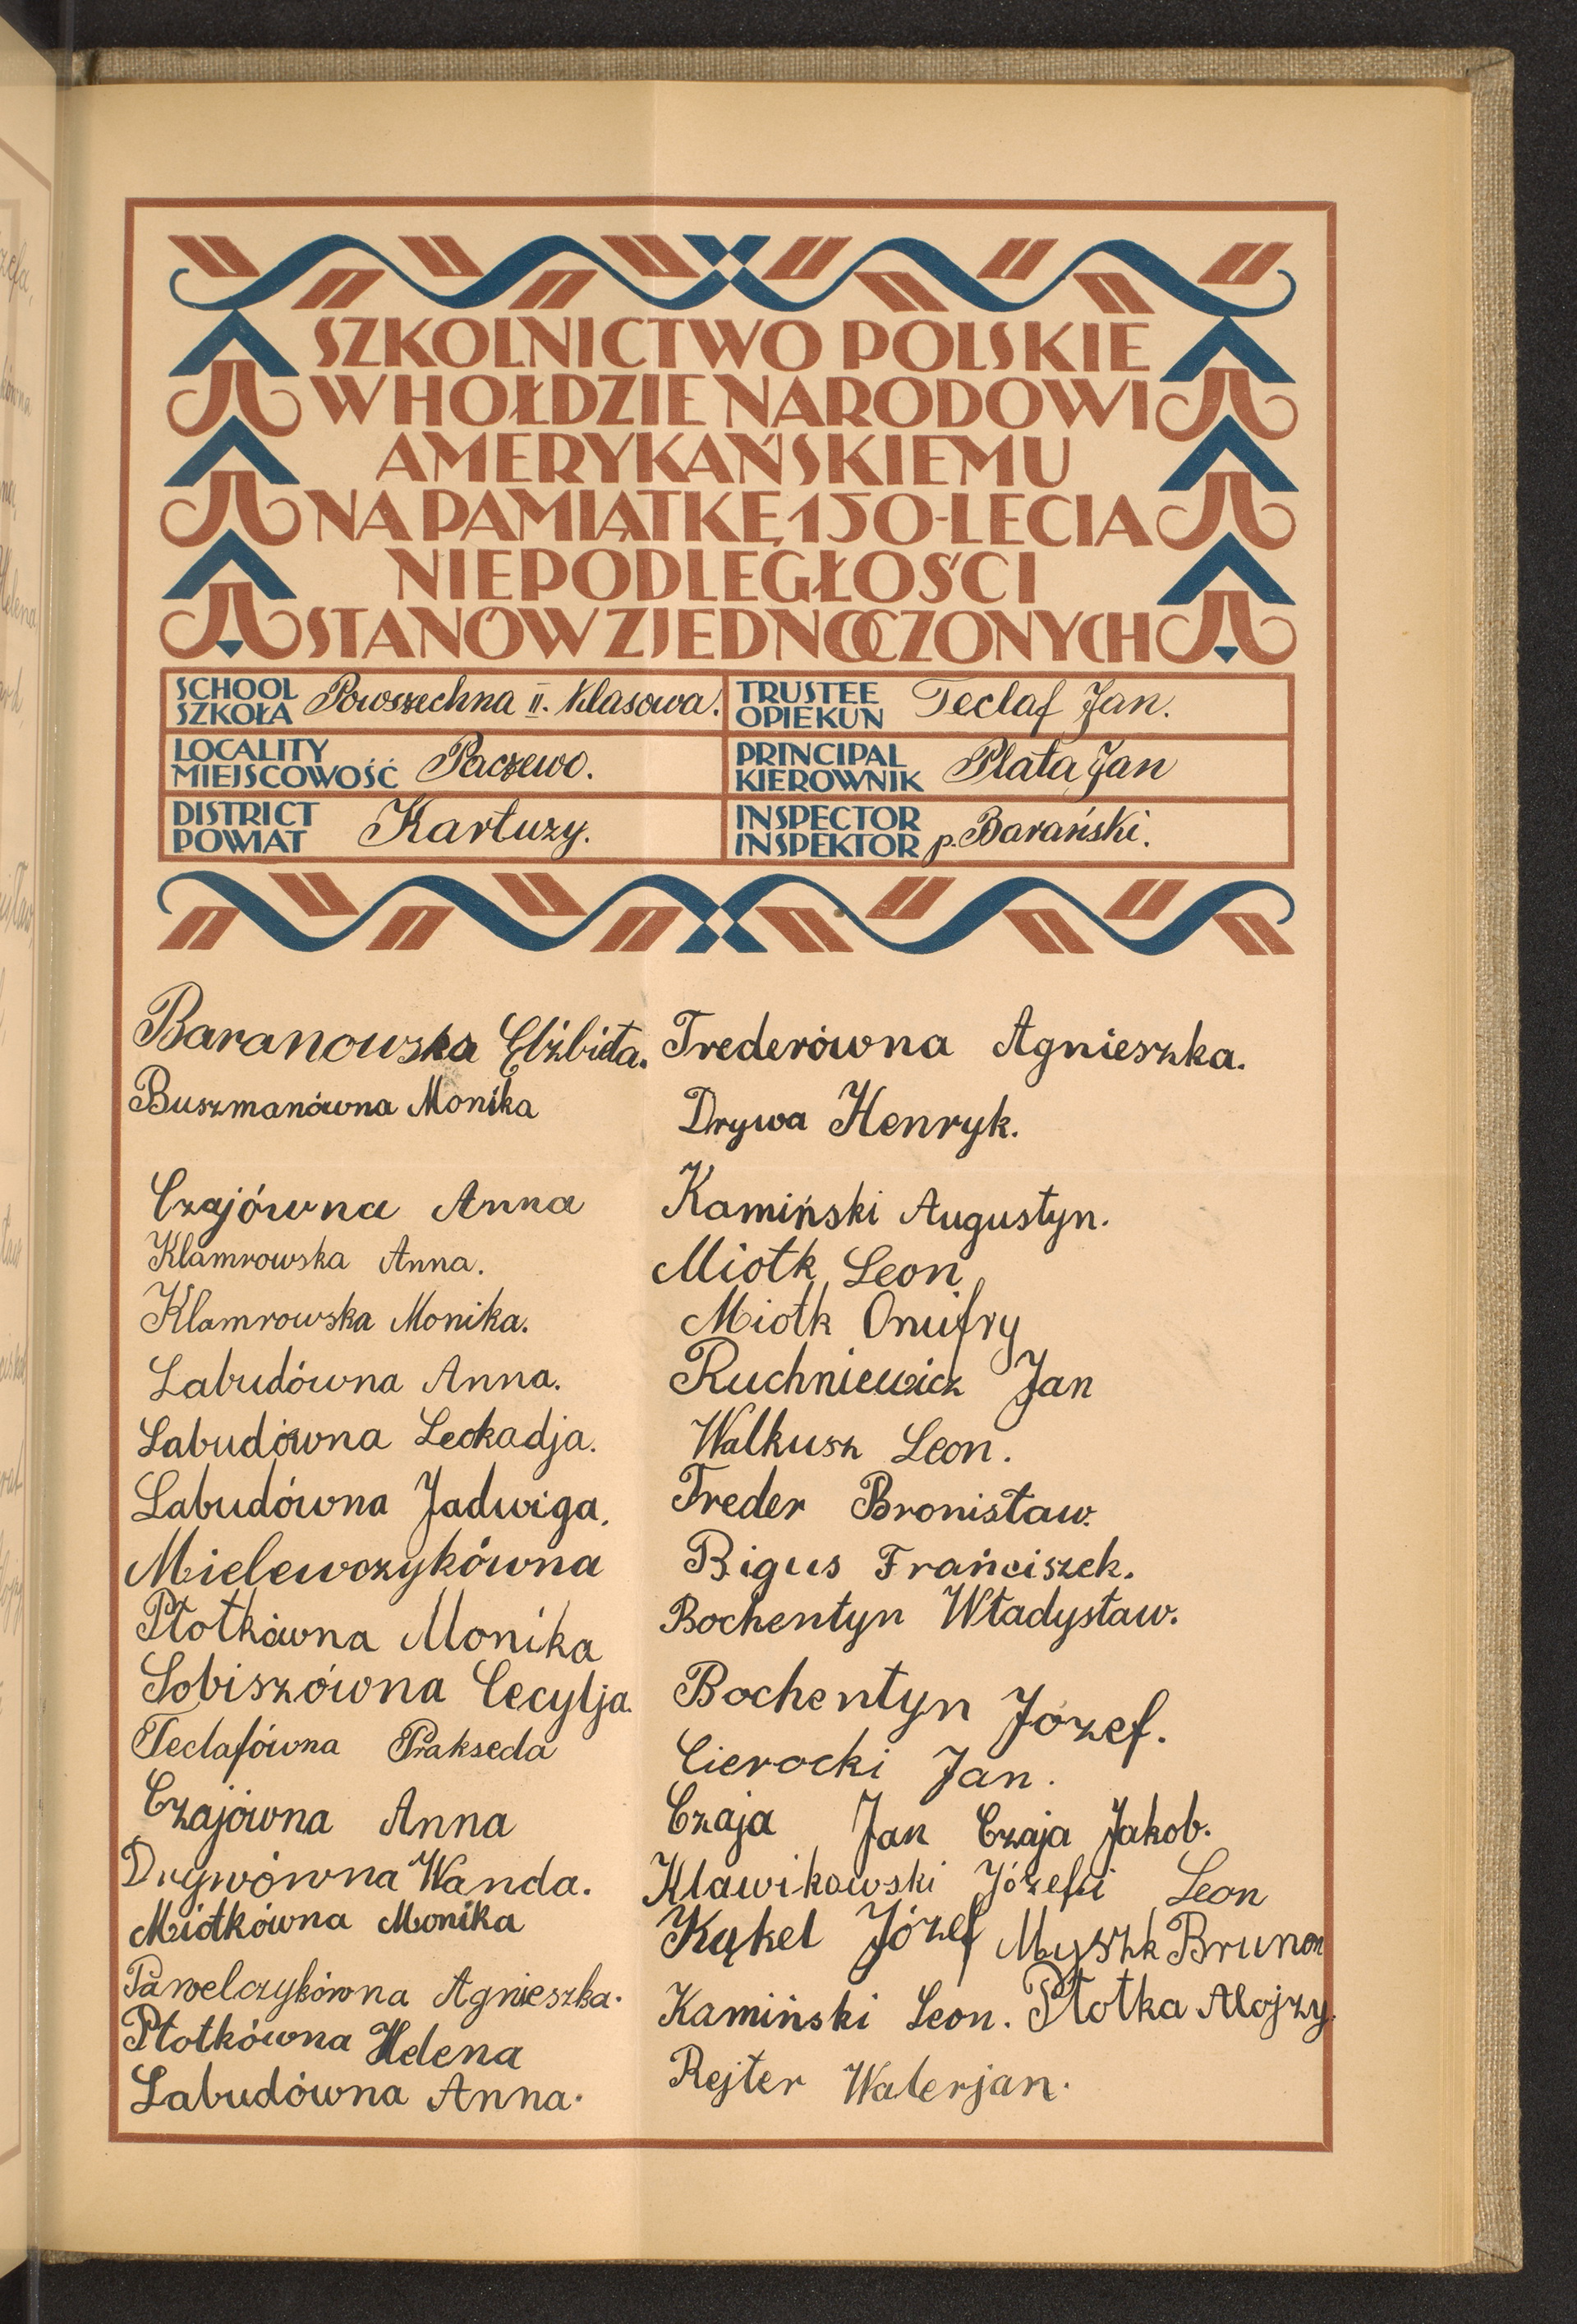 SZKOLNICTWO POLSKIE
W HOŁDZIE NARODOWI
AMERYKAŃSKIEMU
NA PAMIĄTKĘ 150-LECIA
NIEPODLEGŁOŚCI
STANÓW ZJEDNOCZONYCH
SCHOOL
SZKOŁA
Powszechna II. klasowa.
TRUSTEE
OPIEKUN
Teclaf Jan.
LOCALITY
MIEJSCOWOŚĆ
Paczewo.
PRINCIPAL
KIEROWNIK
Plata Jan
DISTRICT
POWIAT
Kartuzy.
INSPECTOR
INSPEKTOR
p. Barański.
Baranowska Elżbieta.
Buszmanówna Monika
Czajówna Anna
Klamrowska Anna.
Klamrowska Monika.
Labudówna Anna.
Labudówna Leokadja.
Labudówna Jadwiga.
Mielewczykówna
Płotkówna Monika
Sobiszówna Cecylja.
Teclafówna Prakseda
Czajówna Anna
Drywówna Wanda.
Miotkówna Monika
Pawelczykówna Agnieszka.
Płotkówna Helena
Labudówna Anna.
Trederówna Agnieszka.
Drywa Henryk.
Kamiński Augustyn.
Miotk Leon
Miotk Onufry
Ruchniewicz Jan
Walkusz Leon.
Treder Bronisław.
Bigus Frańciszek.
Bochentyn Władysław.
Bochentyn Józef.
Cierocki Jan.
Czaja Jan Czaja Jakob.
Klawikowski Józef i Leon
Kąkel Józef Myszk Brunon
Kamiński Leon. Płotka Alojzy.
Rejter Walerjan.